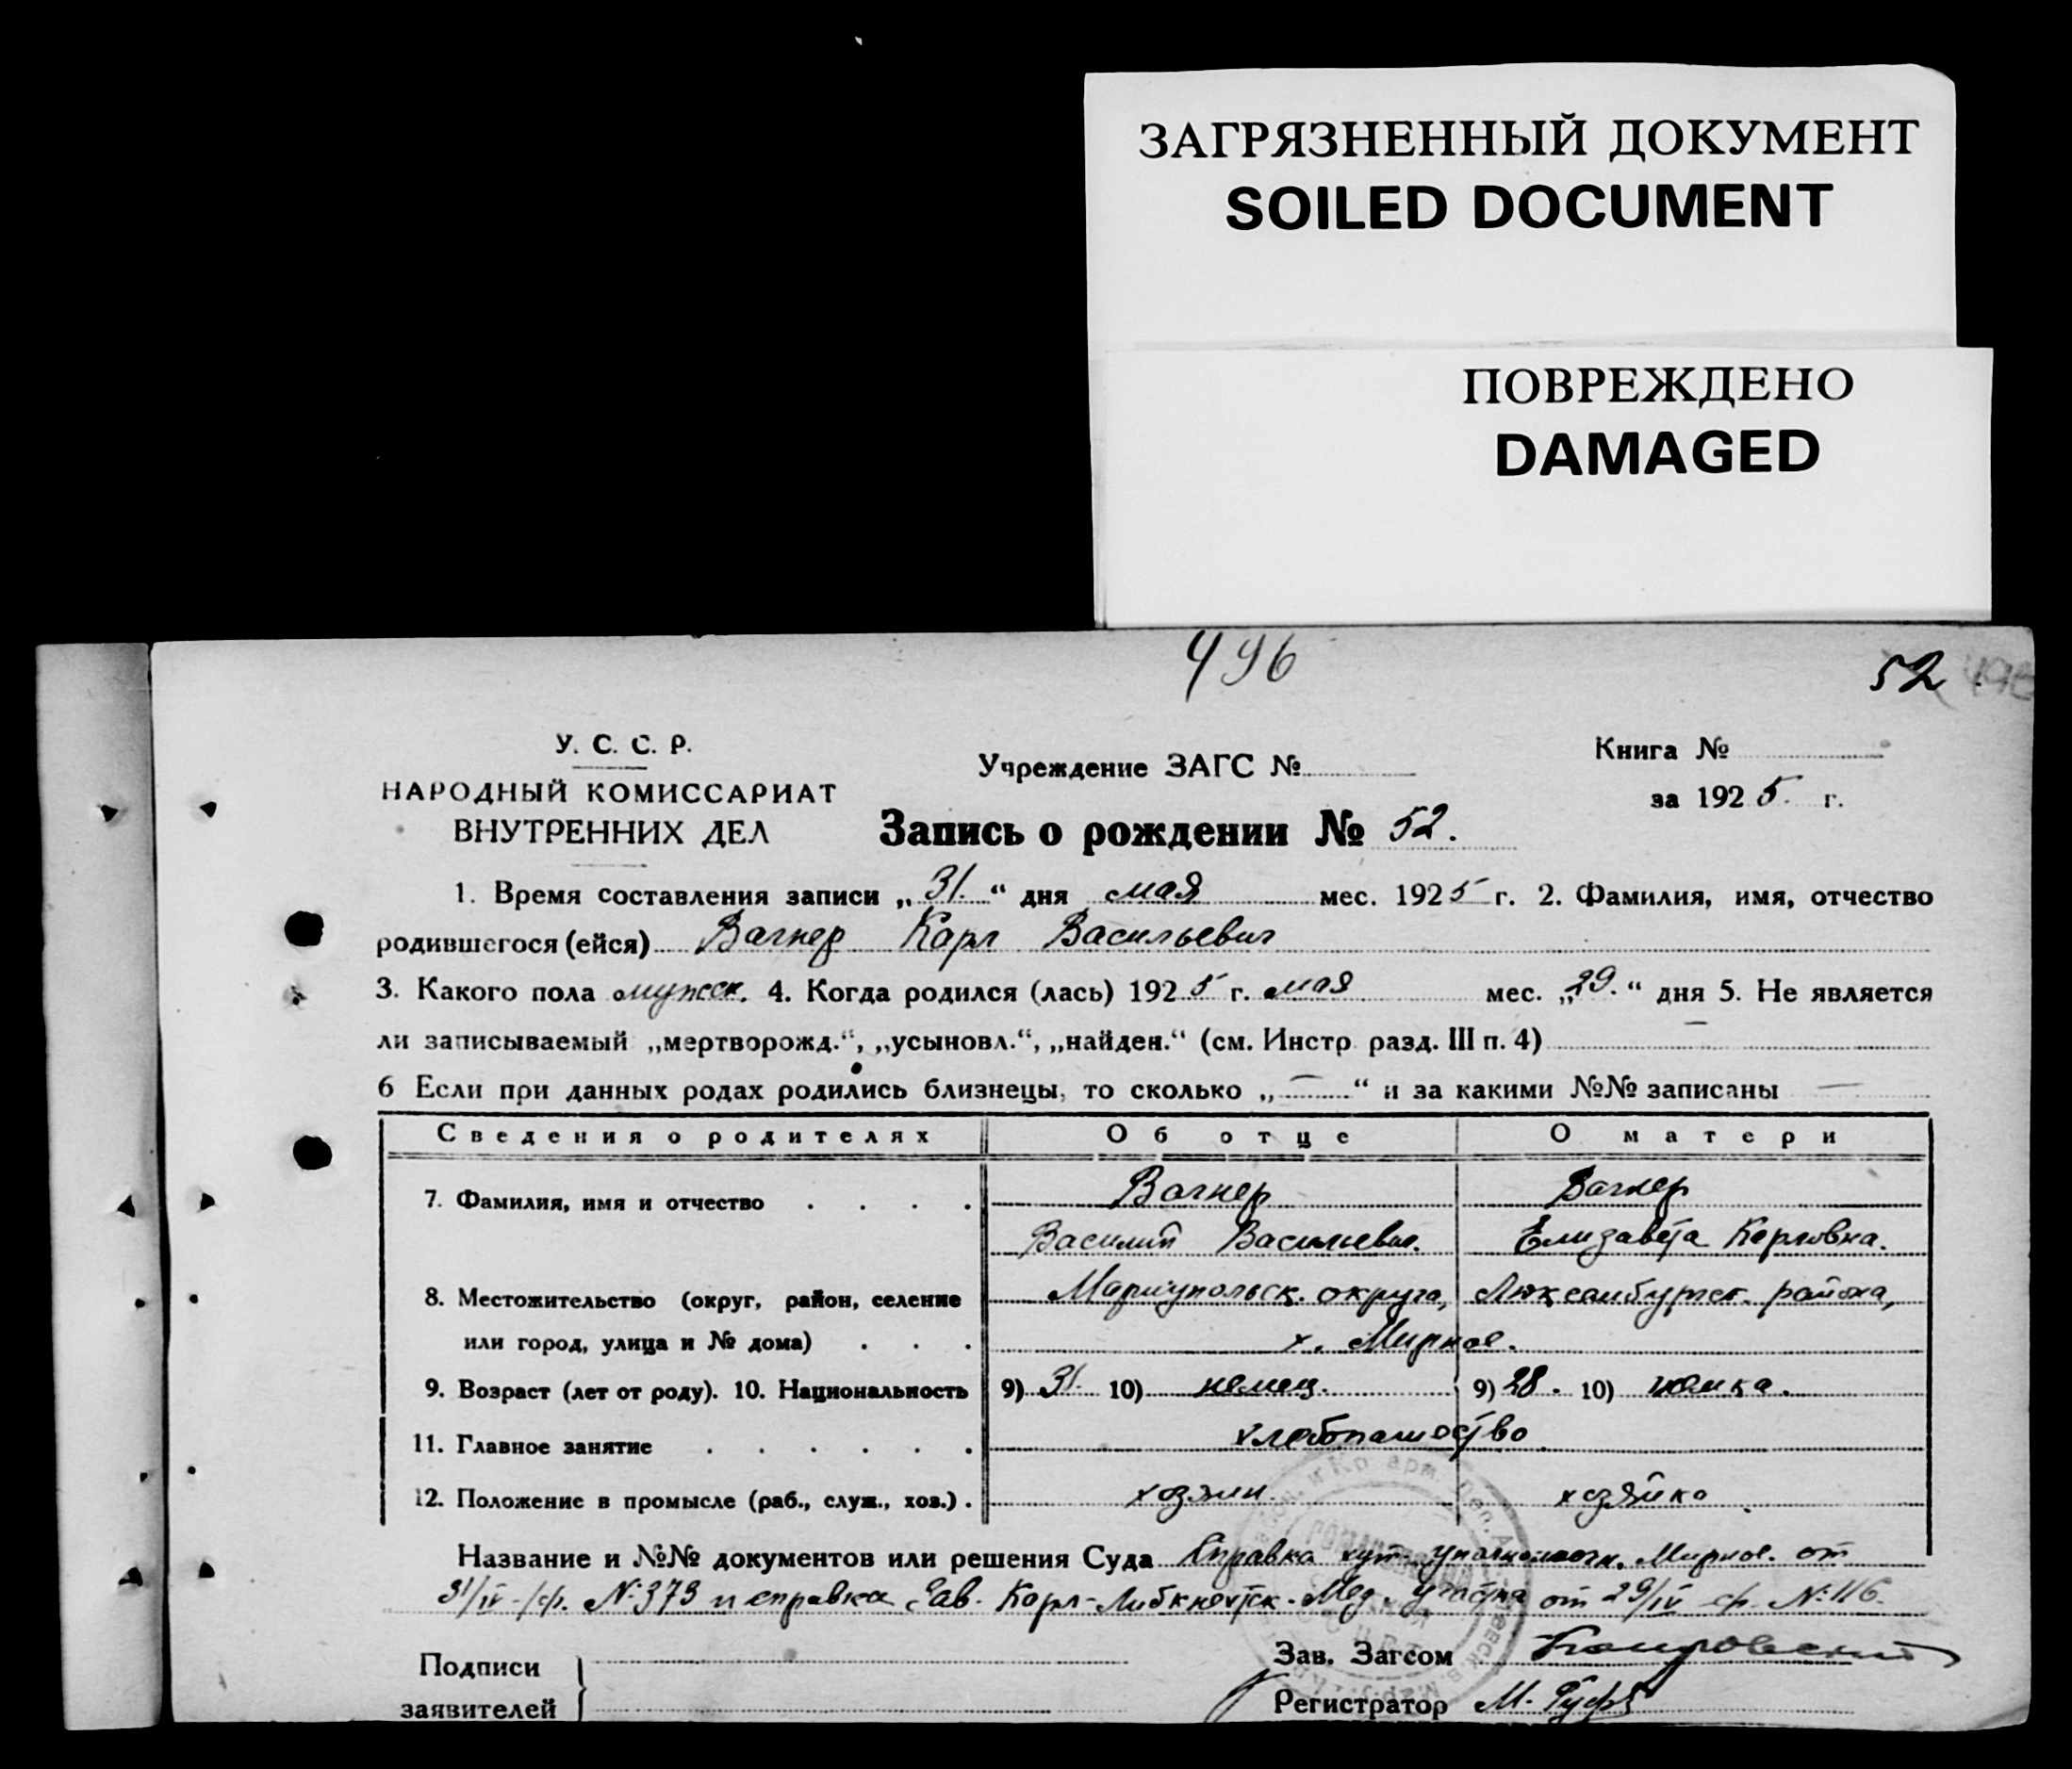 ЗАГРЯЗНЕННЫЙ ДОКУМЕНТ
SOILED DOCUMENT
ПОВРЕЖДЕНО
DAMAGED
496
52
У. С. С. Р.
НАРОДНЫЙ КОМИССАРИАТ
ВНУТРЕННИХ ДЕЛ
Учреждение ЗАГС №
Книга №
за 1925 г.
Запись о рождении № 52.
1. Время составления записи „31.“ дня мая мес. 1925 г. 2. Фамилия, имя, отчество
родившегося (ейся) Вагнер Карл Васильевич
3. Какого пола мужск. 4. Когда родился (лась) 1925 г. мая мес. „29.“ дня 5. Не является
ли записываемый „мертворожд.“, „усыновл.“, „найден.“ (см. Инстр. разд. III п. 4) —
6 Если при данных родах родились близнецы, то сколько „—“ и за какими №№ записаны —
Сведения о родителях Об отце О матери
7. Фамилия, имя и отчество . . . . Вагнер Вагнер
Василий Васильевич. Елизавета Карловна.
8. Местожительство (округ, район, селение Мариупольск. округа, Люксембургск. района,
или город, улица и № дома) . . . х. Мирное.
9. Возраст (лет от роду). 10. Национальность 9) 31. 10) немец. 9) 28. 10) немка.
11. Главное занятие . . . . . . хлебопашество
12. Положение в промысле (раб., служ., хоз.) . хозяин. хозяйка.
Название и №№ документов или решения Суда Справка хут. уполномоч. Мирное. от
31/IV-/ф. №373 и справка Зав. Карл-Либкнехтск. Мед. участка от 29/IV ф. №116.
Подписи
заявителей
Зав. Загсом
Регистратор М.